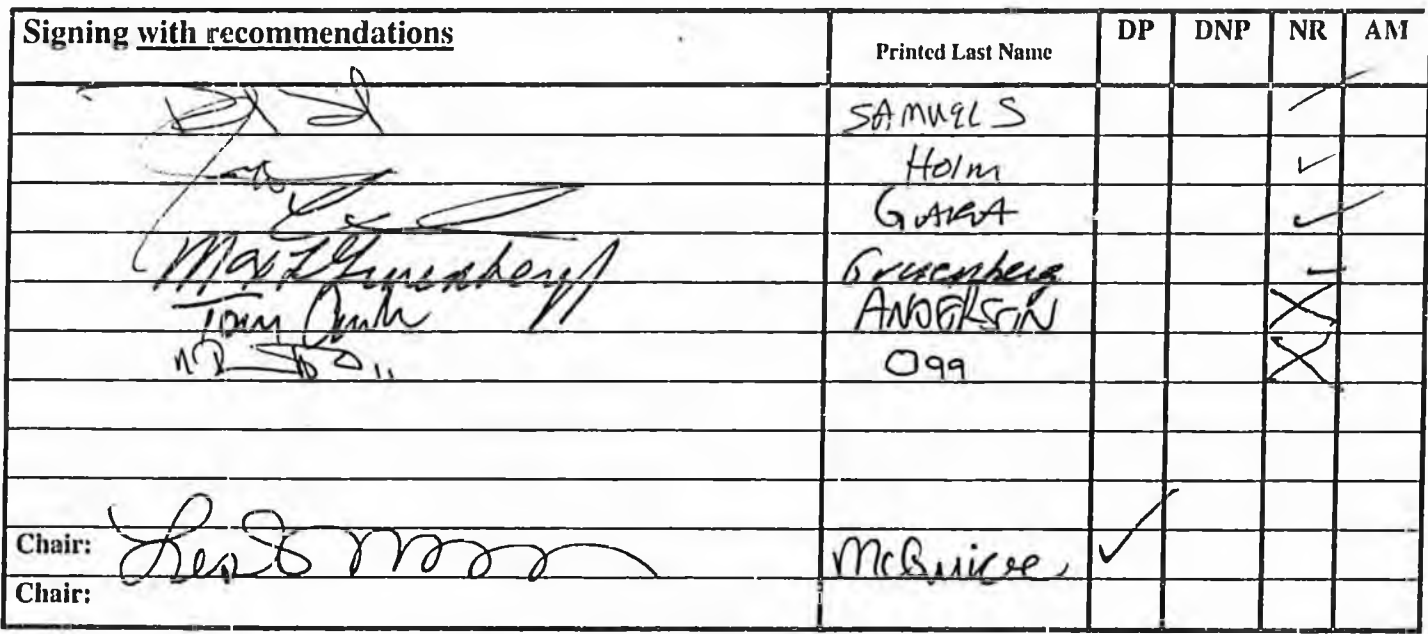 Signing with recommendations Printed Last Name DP DNP NR AM
SAMUELS
Holm
GARA
Max F Gruenberg Gruenberg
Tom ANDERSON
Ogg
Chair: McGuire
Chair: